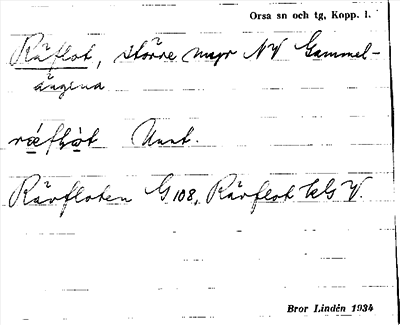 Orsa sn och tg, Kopp. l.
Räflot, större myr NV Gammel-
ängena
Uunt.
Rävfloten G 108, Rävflot kls V.
Bror Lindén 1934